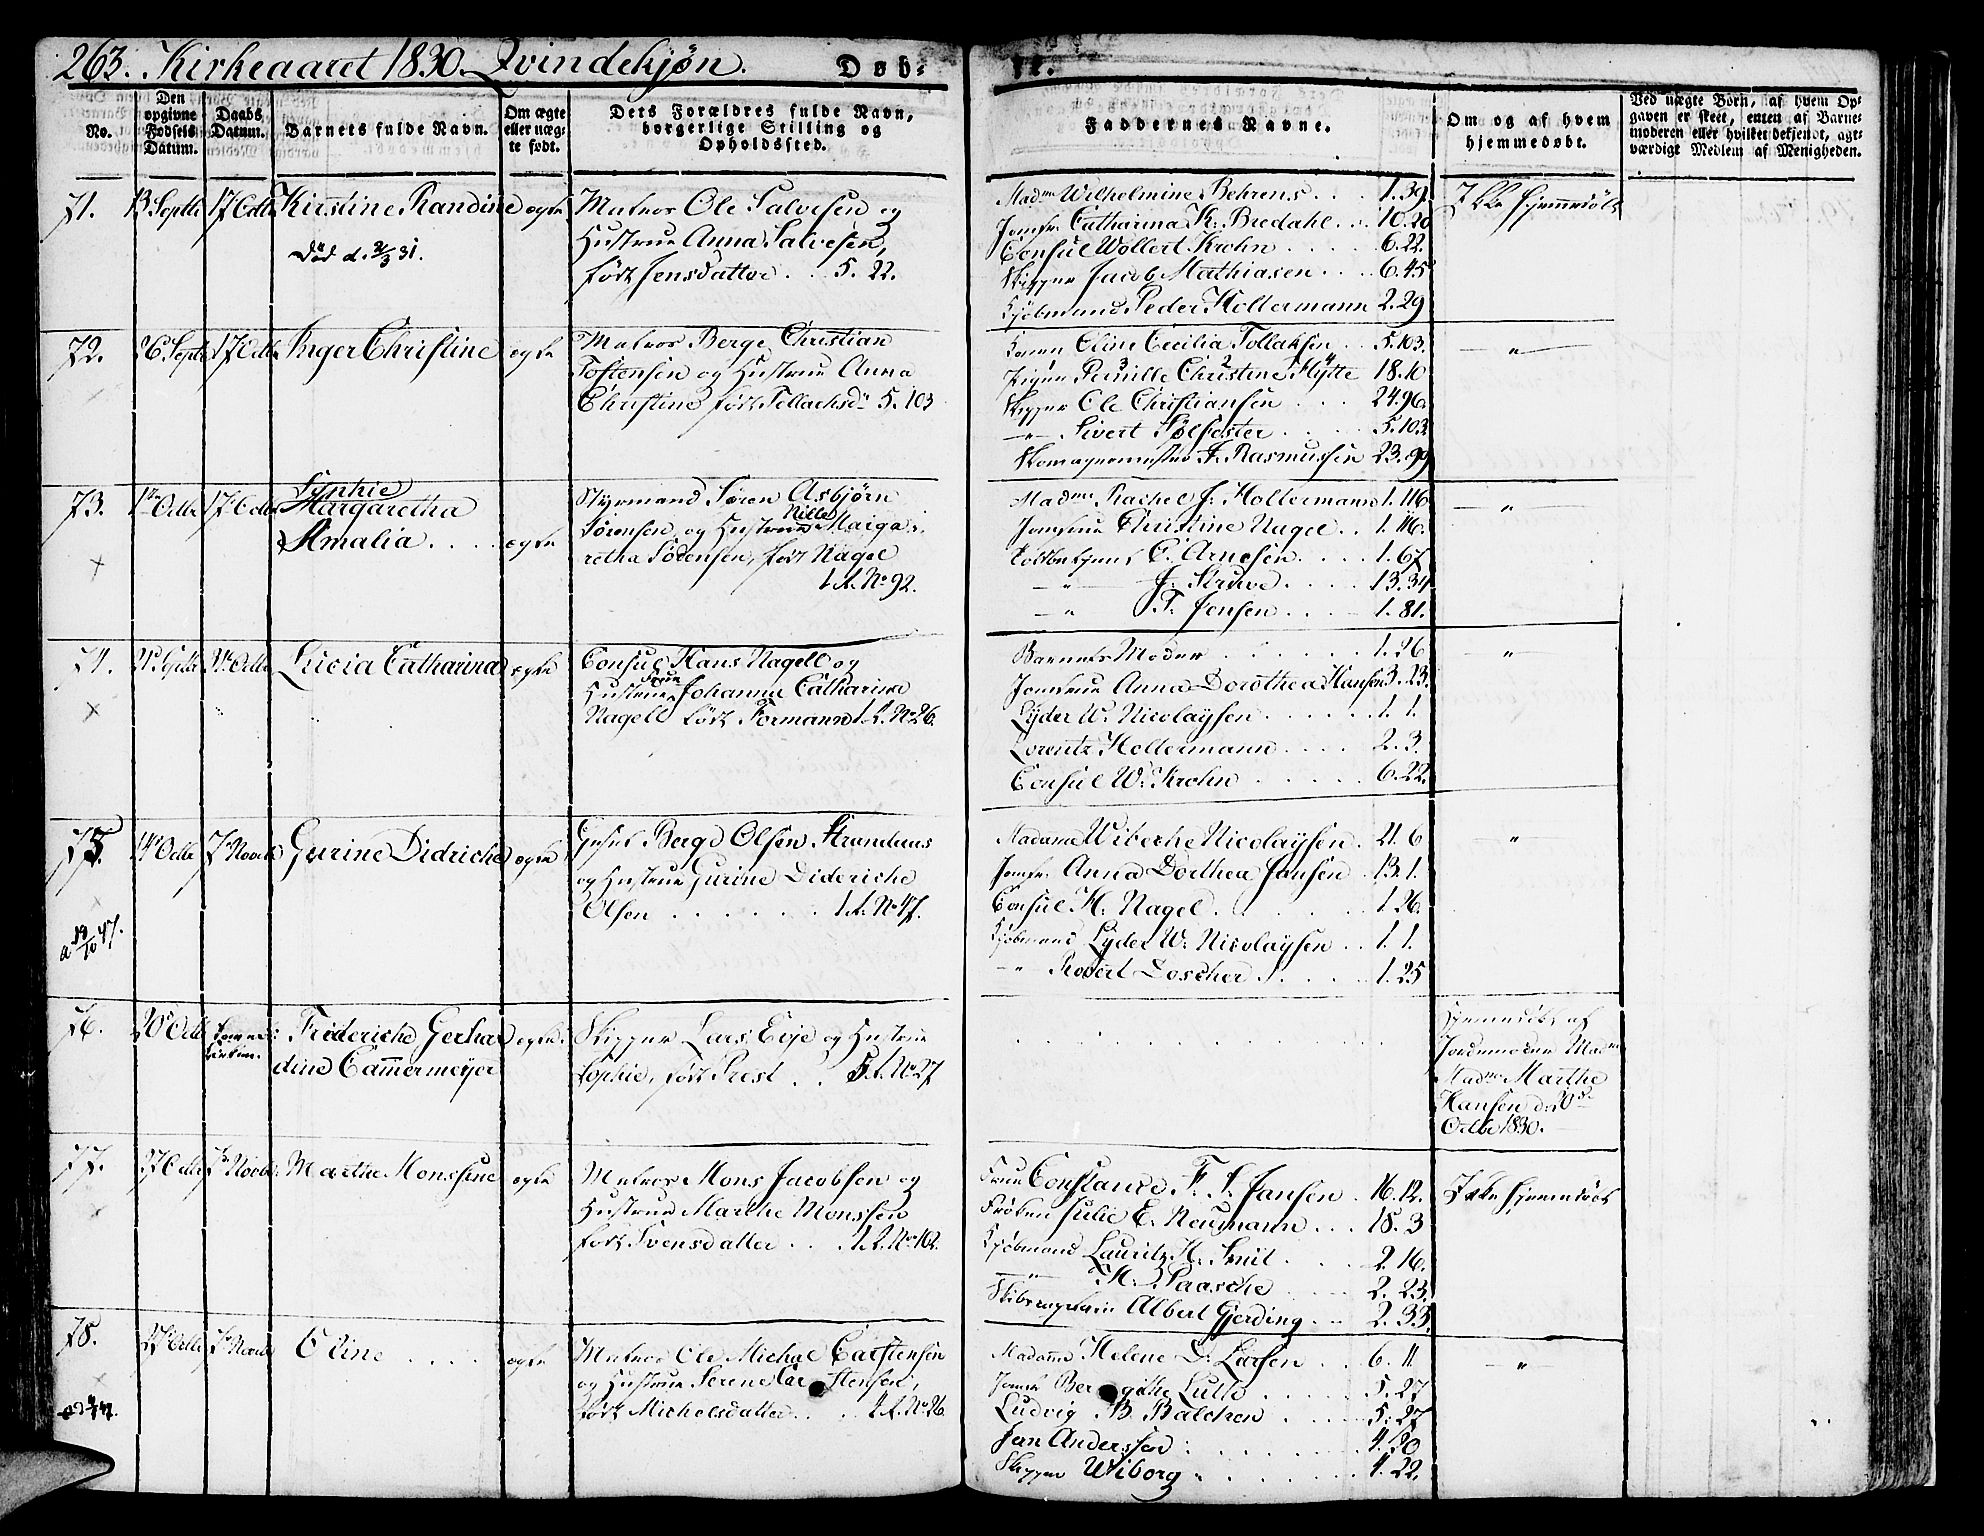 263. Kirkeaaret 1830. Qvindekjøn. Døb-
te.
No.
Den opgivne Fødsels Datum.
Daabs Datum.
Barnets fulde Navn.
Om ægte eller uægte født.
Dets Forældres fulde Navn, borgerlige Stilling og Opholdssted.
Faddernes Navne.
Om og af hvem hjemmedøbt.
Ved uægte Børn, af hvem Opgaven er skeet, enten af Barnemoderen eller hvilket bekjendt, agtværdigt Medlem af Menigheden.
71. 13 Septbr 17 Octbr Kirstine Randine ægte
Død d. 2/3 31.
Matros Ole Salvesen og
Hustrue Anna Salvesen,
født Jensdatter . . 5. 22.
Madme Wilhelmine Behrens . . . 1. 39.
Jomfr. Catharina K. Bredahl . . 10. 20
Consul Wollert Krohn . . . . 6. 22.
Skipper Jacob Mathiasen . . . 6. 45
Kjøbmand Peder Holtermann 2. 29
Ikke hjemmedøbt
72. 26 Septbr 17 Octbr Inger Christine ægte
Matros Berge Christian
Tostensen og Hustrue Anna
Christine født Tollachsd. 5. 103
Konen Eline Cecilia Tollaksen . . 5. 103.
Pigen Pernille Christine Hytte 18. 10
Skipper Ole Christiansen . . . 24. 96.
—"— Sivert Sølfester . . . . 5. 103.
Skomagermester A. Rasmussen 23. 99
— " —
73. 1te Octbr 17 Octbr Sophie
Margaretha
Amalia . . . . ægte
×
Styrmand Søren Asbjørn
Sørensen, og Hustrue Nille Marga-
retha Sørensen, født Nagel
1. A. No 92.
Madme Rachel J. Holtermann 1. 116
Jomfrue Christine Nagel . . 1. 116.
Toldbetjent C. Arnesen . . . . 1. 67.
— " — J. Struve . . . . 13. 34
— " T. Jensen . . . . 1. 81.
— " —
74. 21 Septbr 24 Octbr Lucia Catharina ægte
×
Consul Hans Nagell og
Hustrue Frue Johanna Catharine
Nagell født Formann 1. A. No 26.
Barnets Moder . . . . . . 1. 26
Jomfrue Anna Dorothea Hansen 3. 23.
Lyder W. Nicolaysen . . . . . . 1. 1.
Lorentz Holtermann . . . . 2. 3.
Consul W. Krohn . . . . . 6. 22.
— " —
75. 14 Octbr 7 Novbr Gurine Didriche ægte
a 19/10 47.
Berge Olsen Strandenæs
og Hustrue Gurine Dideriche
Olsen . . . . . . 1. A. No 47.
Madame Wibecke Nicolaysen . 21. 6
Jomfr. Anna Dorthea Jansen . 13. 1.
Consul H. Nagel . . . . . 1. 26.
Kjøbmand Lyder W. Nicolaysen . . 1. 1.
" Robert Döscher . . . . . 1. 25
"
76. 20 Octbr Friderиche Gerhar- ægte
dine Cammermeyer
Skipper Lars Eije og Hustrue
Sophie, født Prest . . 5. A. No 27
Hjemmedøbt af
Jordemoder Madme
Madme Marthe
Hansen d. 20de
Octbr 1830.
77. 27 Octbr 7 Novbr Marthe Monssine ægte
Matros Mons Jacobsen og
Hustrue Marthe Monssen
født Svensdatter . . . 1. A. No 102.
Frue Constance F. S. Jansen . 16. 12.
Frøken Julie E. Neumann . . . 18. 3
Kjøbmand Lauritz H. Smit . . . . 2. 16.
—"— H. Paasche . . . . 2. 23.
Skibscapitain Albert Gjerding . . 2. 33.
Ikke hjemmedøbt
78. 27 Octbr 7 Novbr Eline . . . . ægte
Matros Ole Michael Carstensen
og Hustrue Serene Carstensen,
født Michelsdatter . . . . 4. A. No 26.
Madame Helene D. Larsen . . 6. 11
Jomfr. Beregithe Lutte . . . . . 5. 27
Ludvig B. Balchen . . . . . 5. 27
Jan Anderssen . . . . . 4. 20
Skipper Wiborg . . . . . 4. 22.
— " —